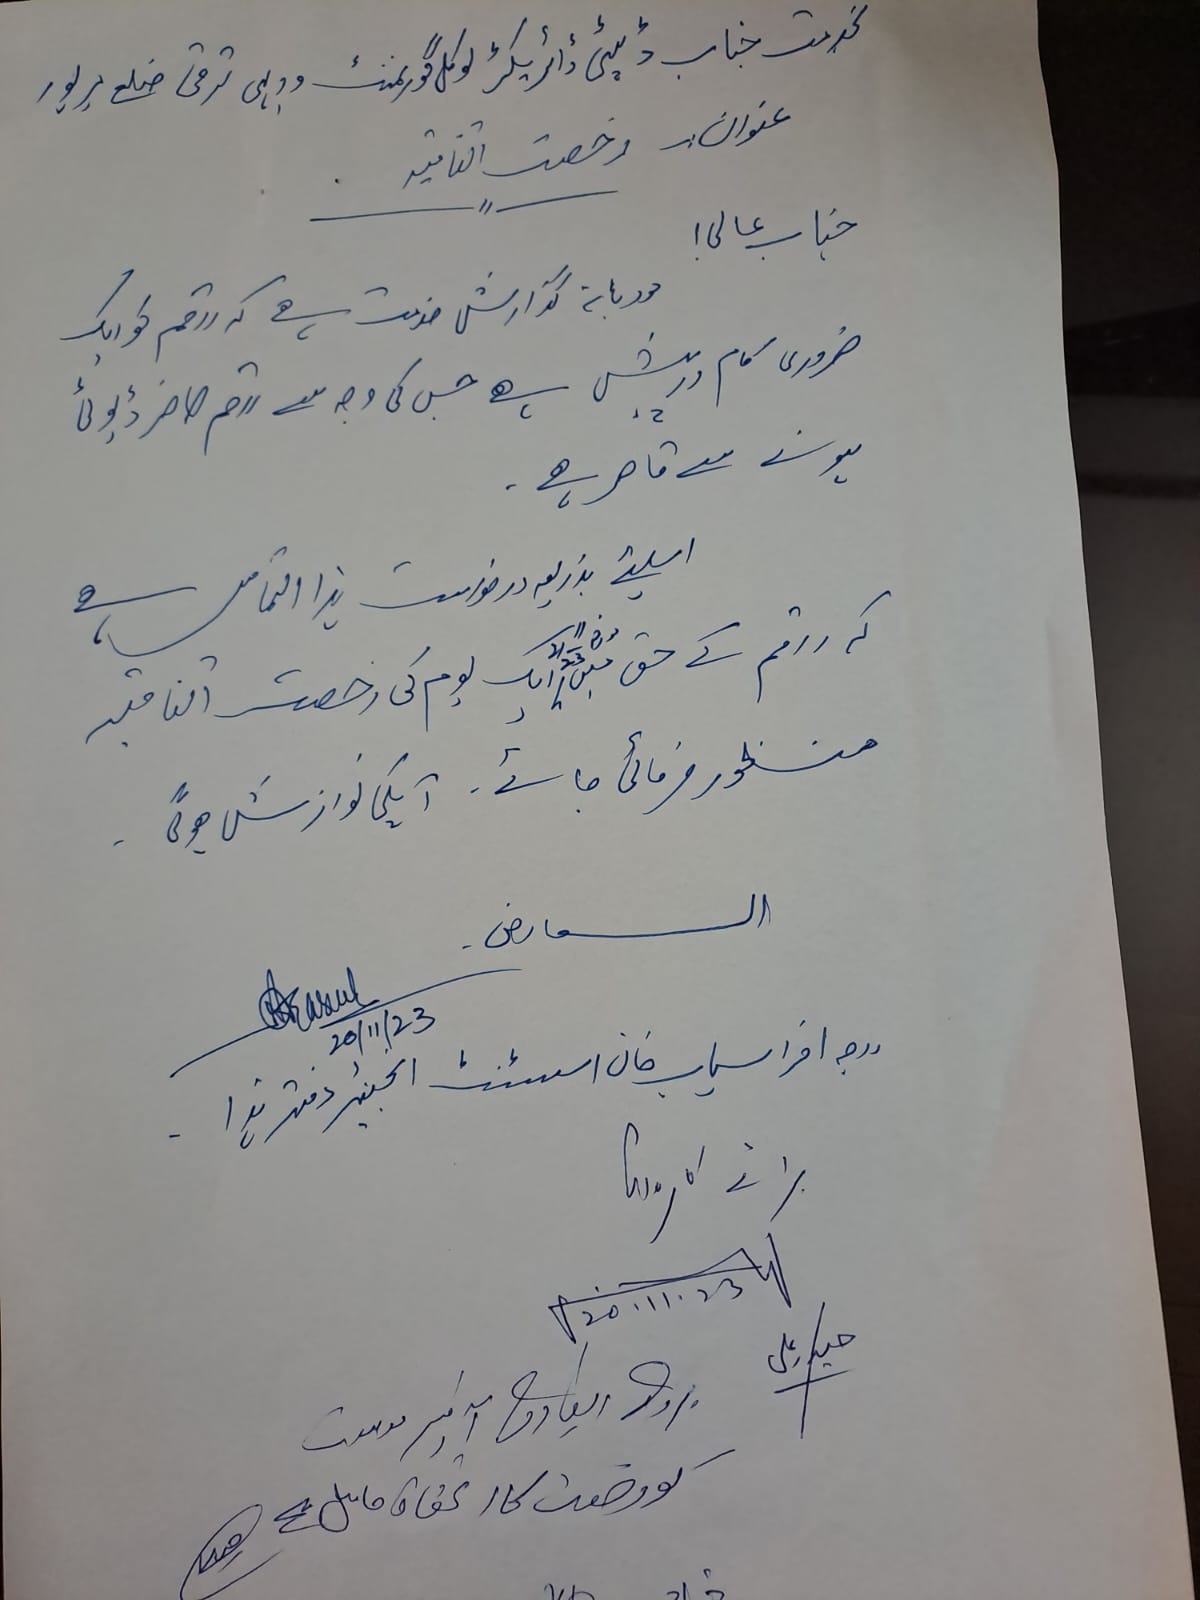 بخدمت جناب ڈپٹی ڈائریکٹر لوکل گورنمنٹ و دیہی ترقی ضلع میرپور
عنوان:۔ رخصت اتفاقیہ
جناب عالی!
مودبانہ گذارش خدمت ہے کہ راقم کو ایک
ضروری کام درپیش ہے جس کی وجہ سے راقم حاضر ڈیوٹی
ہونے سے قاصر ہے ۔
اسلیئے بذریعہ درخواست ہذا التماس ہے
کہ راقم کے حق میں ایک یوم کی رخصت اتفاقیہ
منظور فرمائی جائے ۔ آپکی نوازش ہوگی ۔
العارض ۔
20/11/23
راجہ افراسیاب خان اسسٹنٹ انجینئر دفتر ہذا ۔
برائے کارروائی
20.11.23
حیدر علی
بروئے ریکارڈ آفیسر موصوف
کو رخصت کا استحقاق حاصل ہے